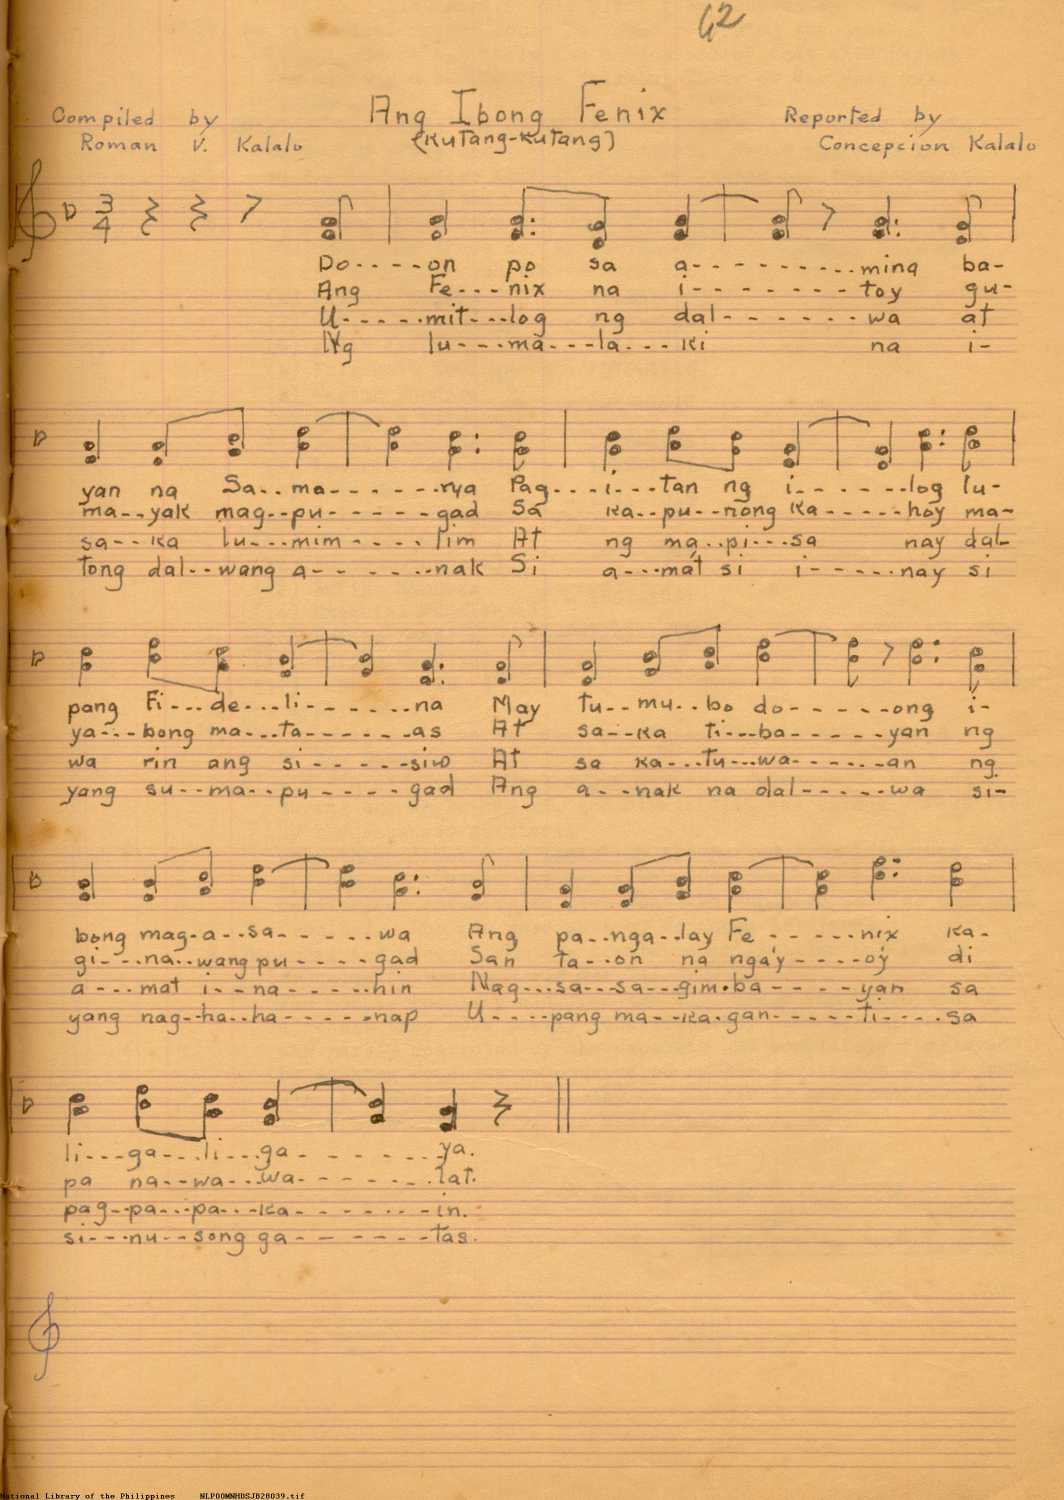 42
Ang Ibong Fenix
Compiled by Reported by
Roman V. Kalalo (Kutang-Kutang) Concepcion Kalalo
3
4
Do-----on po sa a----------ming ba-
Ang Fe---nix na i--------toy gu-
U-----mit---log ng dal------wa at
Ng lu---ma---la---ki na i-
yan na Sa--ma------rya Pag---i---tan ng i------log lu-
ma--yak mag--pu------gad Sa ka--pu--nong ka-----hoy ma-
sa--ka lu---mim----lim At ng ma--pi---sa nay dal-
tong dal--wang a------nak Si a---mat si i-----nay si
pang Fi---de---li------na May tu--mu--bo do-----ong i-
ya---bong ma---ta------as At sa--ka ti---ba-----yan ng
wa rin ang si-----siw At sa ka---tu--wa------an ng
yang su--ma--pu----gad Ang a--nak na dal-----wa si-
bong mag-a--sa-----wa Ang pa--nga--lay Fe-----nix ka-
gi---na--wang pu----gad San ta--on na ngay----oy di
a---mat i--na-----hin Nag---sa--sa--gim-ba----yan sa
yang nag-ha--ha-----nap U----pang ma--ka-gan-----ti----sa
li---ga---li---ga-------ya.
pa na--wa---wa-------lat.
pag--pa---pa---ka------in.
si---nu--song ga------tas.
National Library of the Philippines NLP00MNHDSJB28039.tif